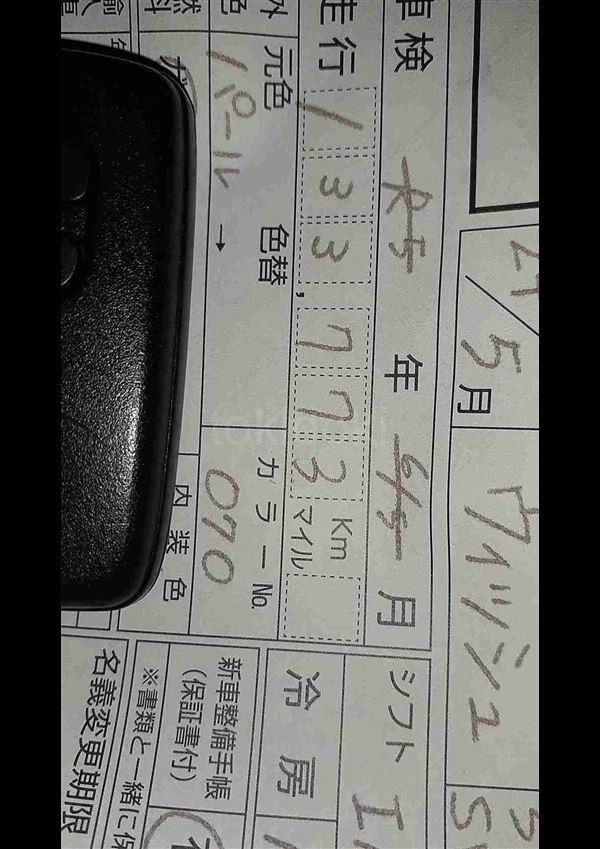 21/5月
ウイッシュ
車検 R5 年 6/5 月
シフト
I
走行 133,773 Km マイル
冷房
元色 パール → 色替
カラーNo. 070
新車整備手帳
(保証書付)
※書類と一緒に保
内装色
名義変更期限